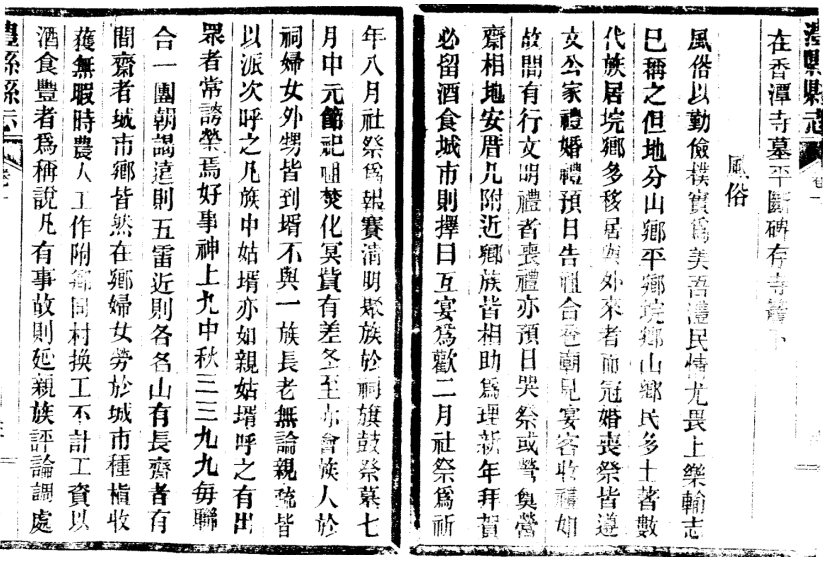 澧縣縣志
在香潭寺墓平斷碑存寺
風俗
風俗以勤儉樸實爲美吾澧民情尤畏上樂輸志
已稱之但地分山鄉平鄉垸鄉山鄉民多土著數
代族居垸鄉多移居與外來者而冠婚喪祭皆遵
文公家禮婚禮預日告祖合巹廟見宴客收禮如
故間有行文明禮者喪禮亦預日哭祭或奠營
齋相地安厝凡附近鄉族皆相助爲理新年拜賀
必留酒食城市則擇日互宴爲歡二月社祭爲祈
年八月社祭爲報賽清明聚族於祠旗鼓祭墓七
月中元節祀祖焚化冥貲有差冬至亦會族人於
祠婦女外甥皆到壻不與一族長老無論親疏皆
以派次呼之凡族中姑壻亦如親姑壻呼之有出
眾者常誇榮焉好事神上九中秋三三九九每聯
合一團朝謁遠則五雷近則各名山有長齋者有
間齋者城市鄉皆然在鄉婦女勞於城市種植收
穫無暇時農人工作附鄉同村換工不計工資以
酒食豐者爲稱說凡有事故則延親族評論調處
澧縣縣志